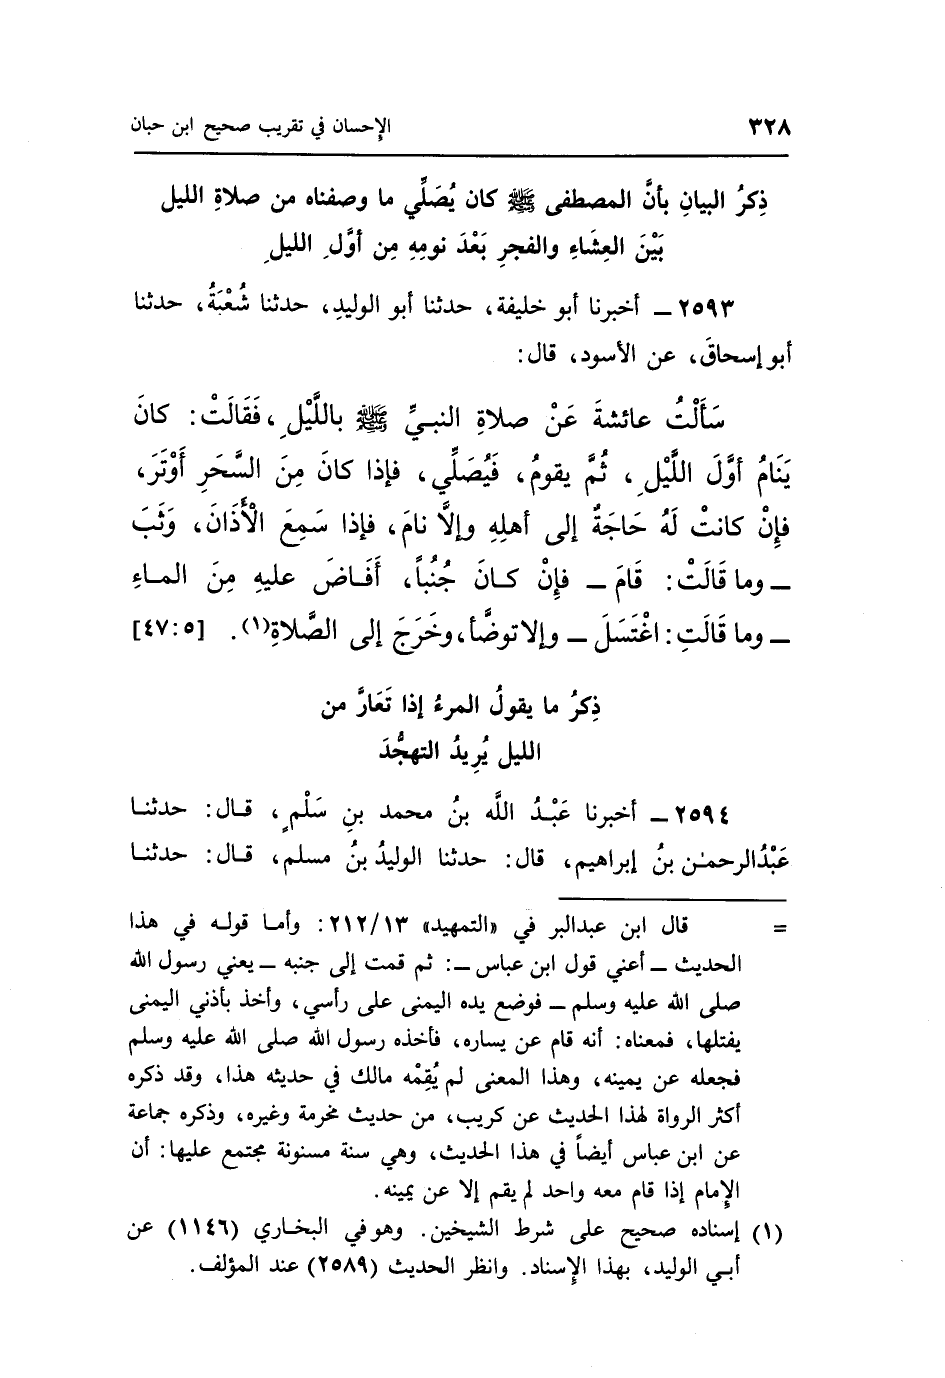 ٣٢٨ الإحسان في تقريب صحيح ابن حبان
ذِكرُ البيانِ بأنَّ المصطفى ﷺ كان يُصَلِّي ما وصفناه من صلاةِ الليل
بَيْنَ العِشَاءِ والفجرِ بَعْدَ نومِهِ مِن أوَّلِ الليلِ
٢٥٩٣ ــ أخبرنا أبو خليفة، حدثنا أبو الوليدِ، حدثنا شُعْبَةُ، حدثنا
أبو إسحاقَ، عن الأسود، قال:
سَأَلْتُ عائشةَ عَنْ صلاةِ النبيِّ ﷺ باللَّيْلِ، فَقَالَتْ: كانَ
يَنَامُ أوَّلَ اللَّيْلِ، ثُمَّ يقومُ، فَيُصَلِّي، فإذا كانَ مِنَ السَّحَرِ أَوْتَرَ،
فإِنْ كانتْ لَهُ حَاجَةٌ إلى أهلِهِ وإلاَّ نامَ، فإذا سَمِعَ الْأَذَانَ، وَثَبَ
ــ وما قَالَتْ: قَامَ ــ فإِنْ كـانَ جُنُباً، أَفَـاضَ عليهِ مِنَ المـاءِ
ــ وما قَالَتِ: اغْتَسَلَ ــ وإلا توضَّأ، وخَرَجَ إلى الصَّلاةِ(١). [٤٧:٥]
ذِكرُ ما يقولُ المرءُ إذا تَعَارَّ من
الليل يُرِيدُ التهجُّدَ
٢٥٩٤ ــ أخبرنا عَبْـدُ اللَّه بنُ محمد بنِ سَلْمٍ، قـال: حدثنـا
عَبْدُالرحمٰن بنُ إبراهيم، قال: حدثنا الوليدُ بنُ مسلم، قـال: حدثنـا
= قال ابن عبدالبر في «التمهيد» ٢١٢/١٣: وأمـا قولـه في هذا
الحديث ــ أعني قول ابن عباس ــ: ثم قمت إلى جنبه ــ يعني رسول الله
صلى الله عليه وسلم ــ فوضع يده اليمنى على رأسي، وأخذ بأذني اليمنى
يفتلها، فمعناه: أنه قام عن يساره، فأخذه رسول الله صلى الله عليه وسلم
فجعله عن يمينه، وهذا المعنى لم يُقِمْه مالك في حديثه هذا، وقد ذكره
أكثر الرواة لهذا الحديث عن كريب، من حديث مخرمة وغيره، وذكره جماعة
عن ابن عباس أيضاً في هذا الحديث، وهي سنة مسنونة مجتمع عليها: أن
الإمام إذا قام معه واحد لم يقم إلا عن يمينه.
(١) إسناده صحيح على شرط الشيخين. وهو في البخاري (١١٤٦) عن
أبـي الوليد، بهذا الإسناد. وانظر الحديث (٢٥٨٩) عند المؤلف.